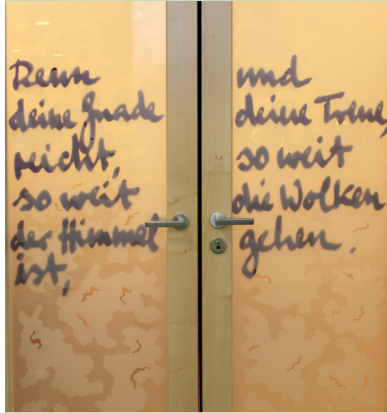 Denn
deine Gnade
reicht,
so weit
der Himmel
ist,
und
deine Treue,
so weit
die Wolken
gehen.